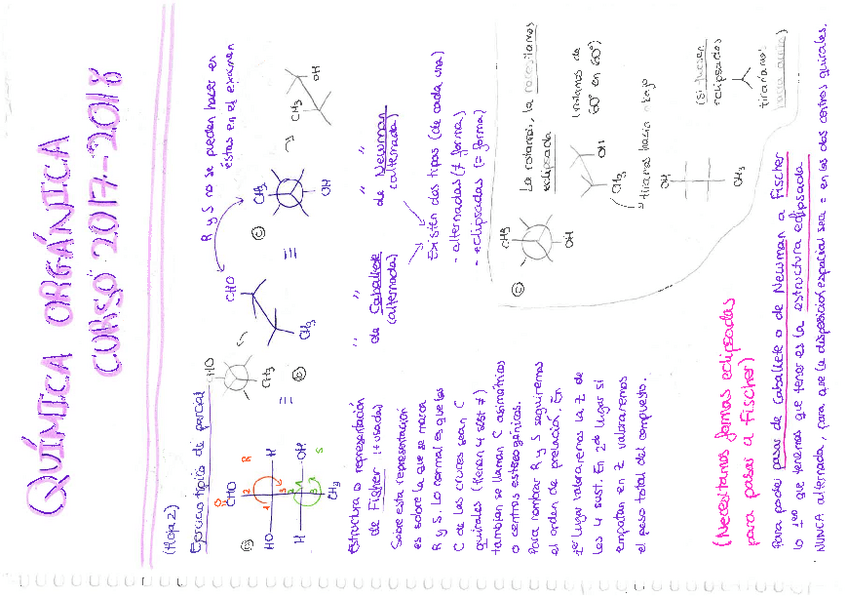 QUÍMICA ORGÁNICA
CURSO 2017-2018
(Hoja 2)
Ejercicio típico de parcial
R y S no se pueden hacer en
éstas en el examen
CHO
HO
H
R
H
OH
S
CH3
CHO
CH3
CHO
CH3
≡
≡
CH3
OH
CH3
OH
Estructura o representación
de Fischer (+ usada)
Sobre esta representación
es sobre la que se marca
R y S. Lo normal es que los
C de las cruces sean C
quirales (tienen 4 sust ≠)
también se llaman C asimétricos
o centros estereogénicos.
Para nombrar R y S seguiremos
el orden de prelación. En
1er lugar valoraremos la Z de
los 4 sust. En 2do lugar si
empatan en Z valoraremos
el peso total del compuesto.
" "
de Caballete
(alternada)
" "
de Newman
(alternada)
Existen dos tipos (de cada una)
- alternadas (≠ forma)
- eclipsadas (= forma)
CH3
OH
La rotamos, la
eclipsada
(rotamos de
60° en 60°)
OH
CH3
tiramos hacia abajo
OH
CH3
(Si fuesen
eclipsados
tiraríamos
hacia arriba)
(Necesitamos formas eclipsadas
para pasar a Fischer)
Para poder pasar de Caballete o de Newman a Fischer
lo 1ero que tenemos que tener es la estructura eclipsada
NUNCA alternada, para que la disposición espacial sea = en los dos centros quirales.